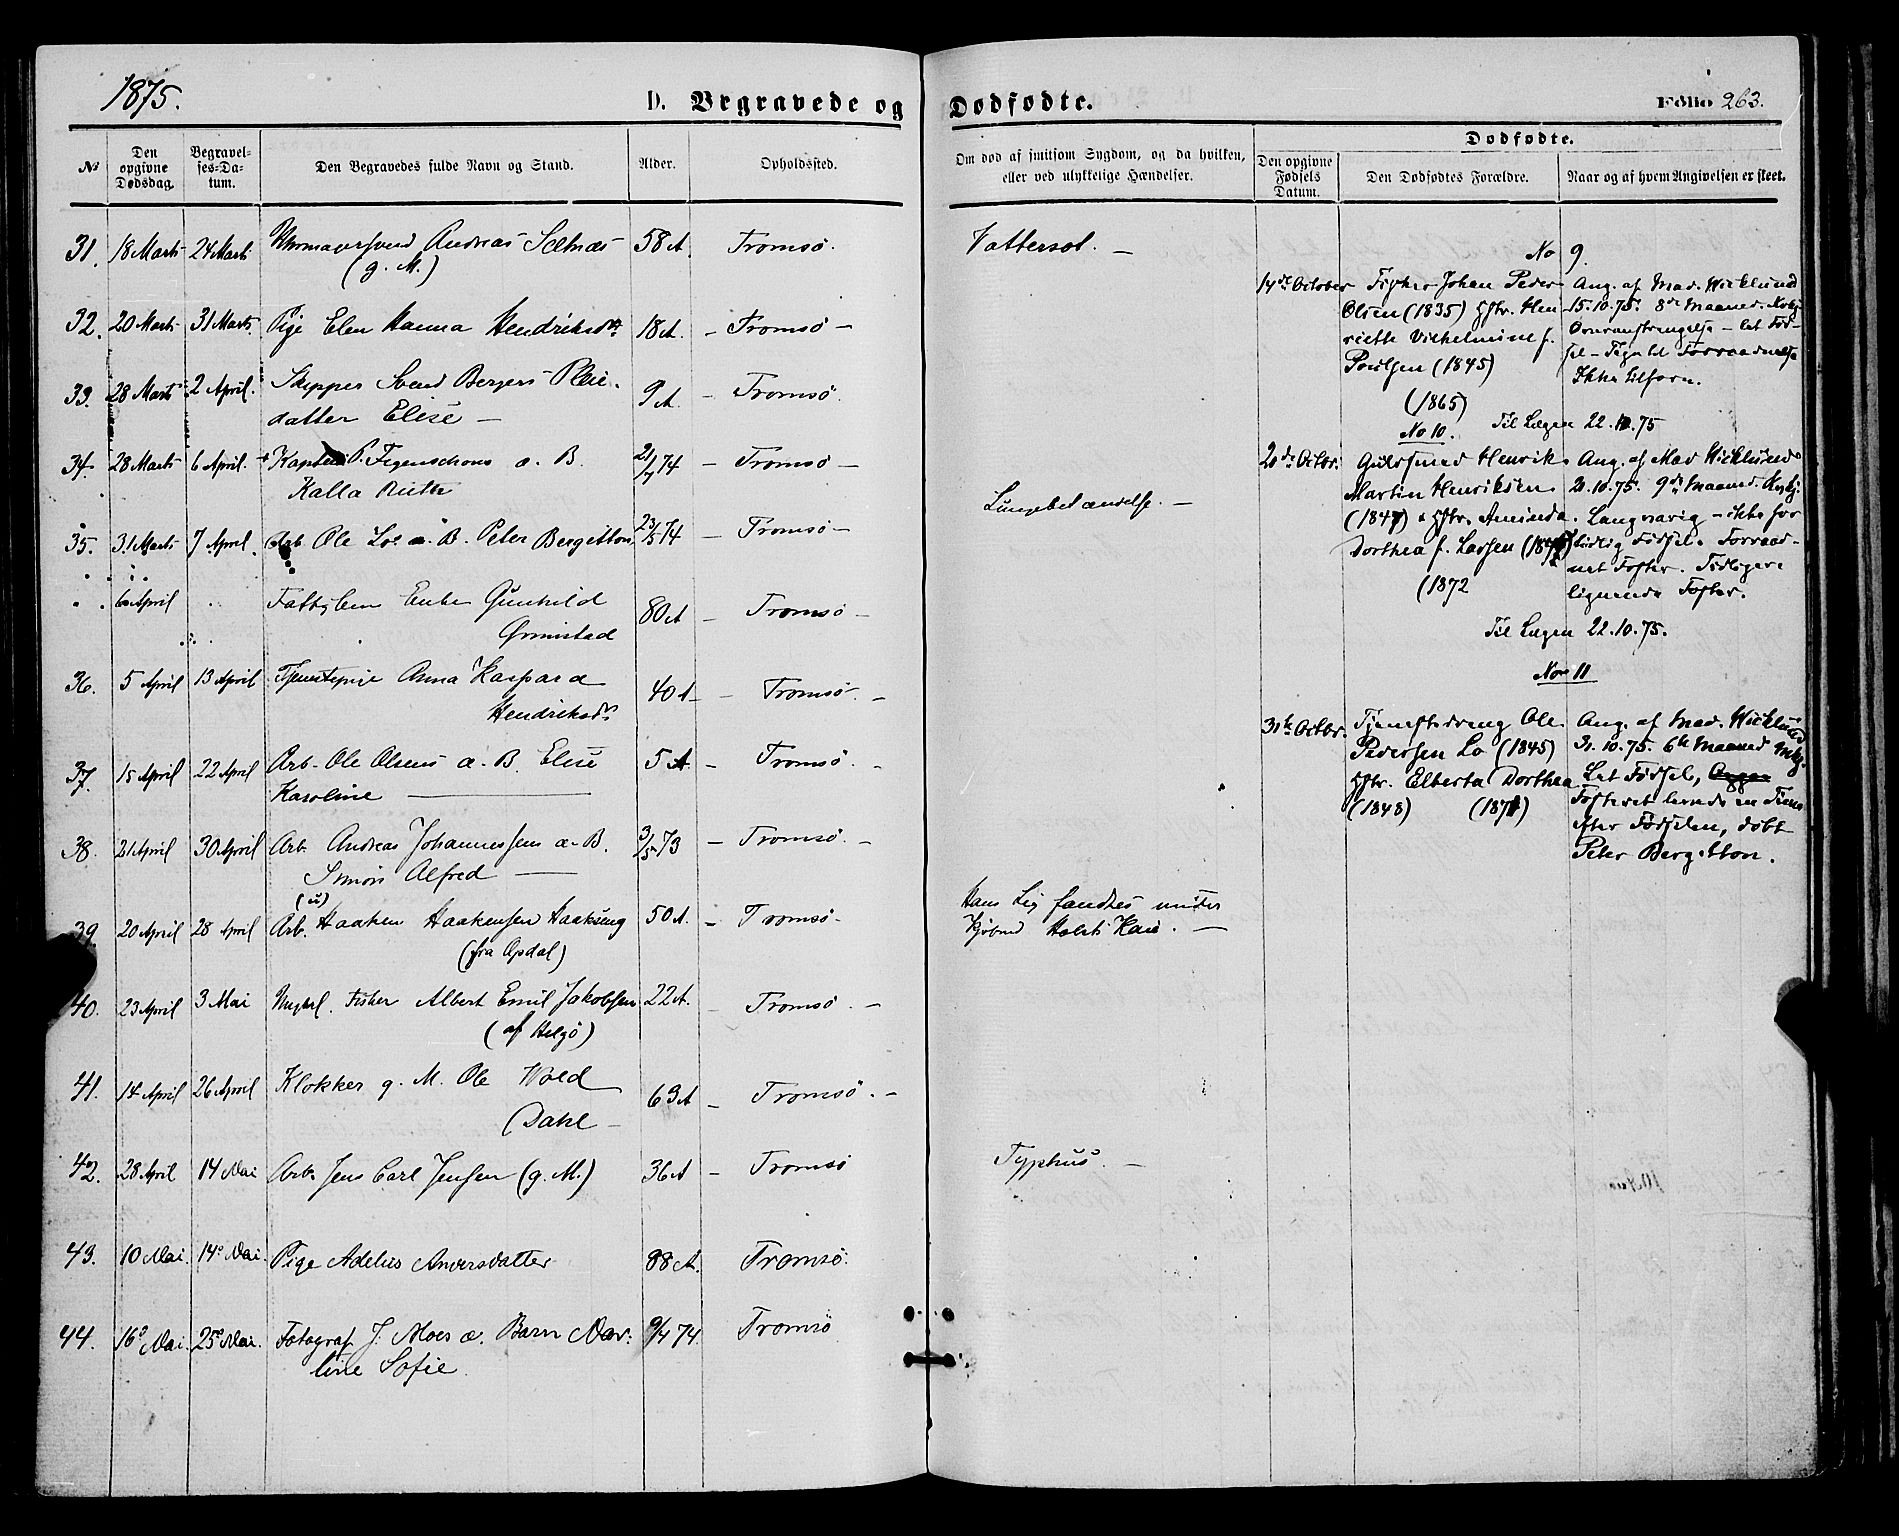 1875.
D. Begravede og Dødfødte.
Folio 263.
No
Den opgivne Dødsdag.
Begravelses-Datum.
Den Begravedes fulde Navn og Stand.
Alder.
Opholdssted.
Om død af smitsom Sygdom, og da hvilken, eller ved ulykkelige Hændelser.
Dødfødte.
Den opgivne Fødsels Datum.
Den Dødfødtes Forældre.
Naar og af hvem Angivelsen er skeet.
31. 18 Marts 24 Marts Andreas Sætnæs 58 A Tromsø. Vattersot. —
(g. M.)
32. 20 Marts 31 Marts Pige Elen Hanna Hendriksdr 18 A — Tromsø —
33. 28 Marts 2 April. Skipper Svend Bergers Pleie-
datter Elise — 9 A. — Tromsø.
34. 28 Marts 6 April. P. Figenschous æ. B. 21/7 74 — Tromsø —
Kalla Lungebetændelse. —
35. 31 Marts 7 April. Arb. Ole Loe æ. B. Peter Bergitton 23/5 74 — Tromsø —
6 April Enke Gunhild 80 A — Tromsø —
Ørmistad
36. 5 April 13 April Tjenestepige Anna Kaspara 40 A — Tromsø. —
Hendriksdr
37. 15 April 22 April Arb. Ole Olsens æ. B. Elise 5 A — Tromsø. —
Karoline —
38. 21 April 30 April Arb. Andreas Johannessens æ. B. 3/5 73 — Tromsø. —
Simon Alfred —
(u)
39. 20 April 28 April Arb. Haaken Haakensen 50 A. — Tromsø —
(fra Opdal)
Hans Lig fandtes under
Kjøbmd Holsts Kai. —
40. 23 April 3 Mai Ungkl. Fisker Albert Emil Jakobsen 22 A. Tromsø. —
(af Helgø)
41. 14 April 26 April Klokker g. M. Ole Wold 63 A — Tromsø. —
Dahl —
42. 28 April 14 Mai Arb. Jens Carl Jensen (g. M.) 36 A — Tromsø Typhus. —
43. 10 Mai. 14 Mai. Pige Adelus Andersdatter 88 A. Tromsø.
44. 16 Mai. 25 Mai. Fotograf J. Moes æ. Barn Nar- 9/4 74. Tromsø
line Sofie.
No 9.
14de October Fisker Johan Peder
Olsen (1835) Hstr. Hen-
riette Vilhelmine f.
Poulsen (1845)
(1865)
Ang. af Mad. Wicklund
15.10.75. 8de Maaned.
Overanstrengelse — let Fød-
sel —
Ikke tilforn.
Til Lægen 22.10.75
No 10.
20de Octbr. Guldsmed Henrik
Martin Henriksen
(1847) & Hstr. Aminda
Dorthea f. Larsen
(1872
Ang. af Mad Wicklund
21.10.75. 9de Maaned.
Langvarig — ikke for
tidlig Fødsel. Forraad-
net Foster. Tidligere
lignende Foster.
Til Lægen 22.10.75.
No 11
31te Octbr. Tjenestedreng Ole
Pedersen Lo (1845)
Hstr. Elberta Dorthea
(1848) (1871)
Ang. af Mad. Wicklund
31.10.75. 6te Maaned
Let Fødsel,
Fosteret levede en Time
efter Fødselen, døbt
Peter Bergitton.